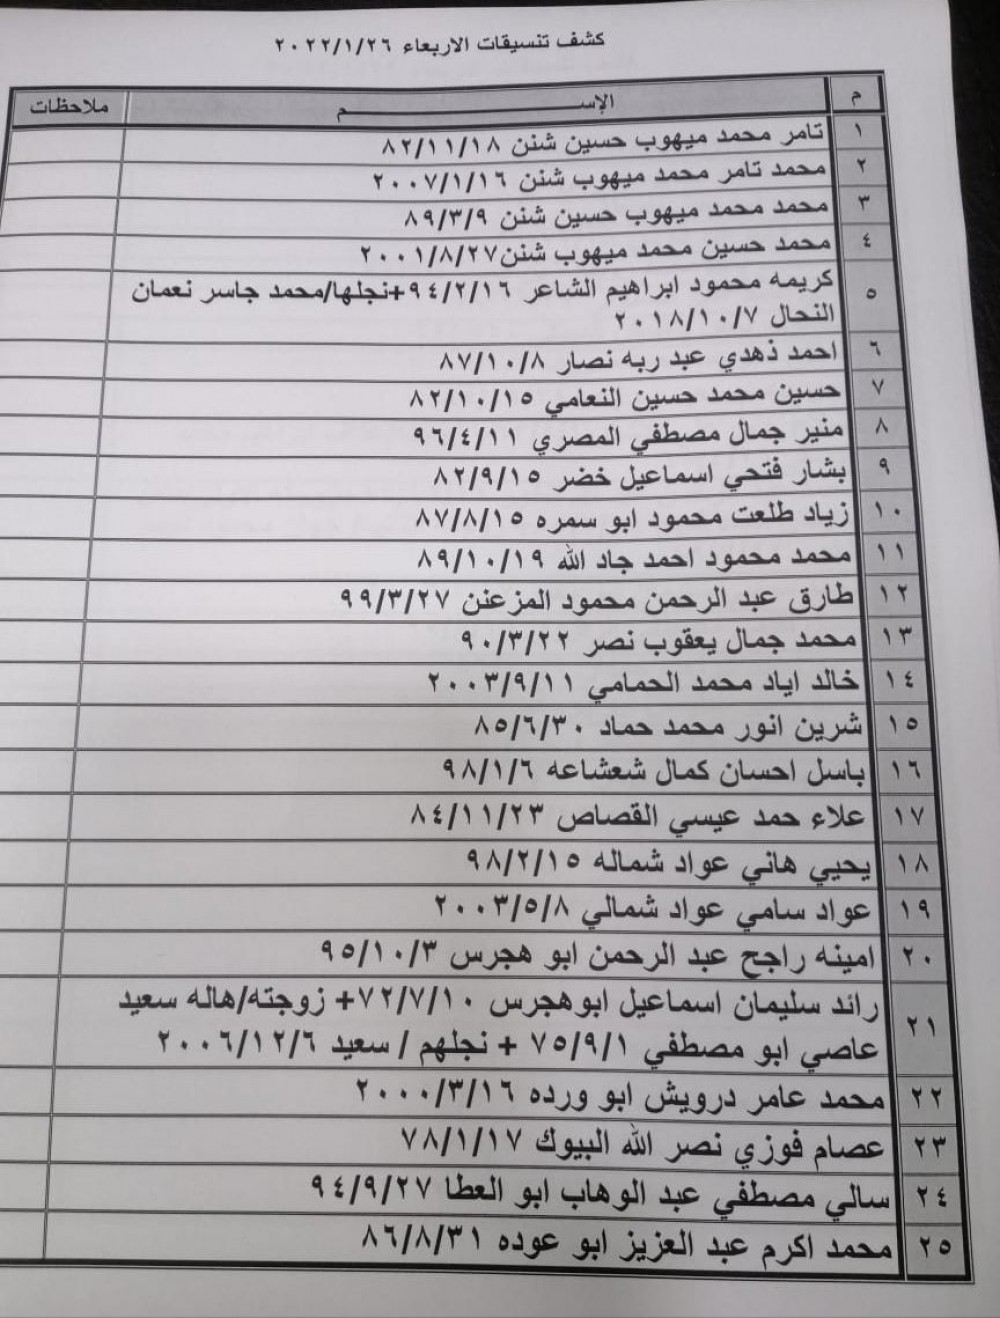 كشف تنسيقات الاربعاء ٢٠٢٢/١/٢٦
م الإســـــــــــــــــم ملاحظات
١ تامر محمد ميهوب حسين شنن ٨٢/١١/١٨
٢ محمد تامر محمد ميهوب شنن ٢٠٠٧/١/١٦
٣ محمد محمد ميهوب حسين شنن ٨٩/٣/٩
٤ محمد حسين محمد ميهوب شنن٢٠٠١/٨/٢٧
٥ كريمه محمود ابراهيم الشاعر ٩٤/٢/١٦+نجلها/محمد جاسر نعمان
النحال ٢٠١٨/١٠/٧
٦ احمد ذهدي عبد ربه نصار ٨٧/١٠/٨
٧ حسين محمد حسين النعامي ٨٢/١٠/١٥
٨ منير جمال مصطفي المصري ٩٦/٤/١١
٩ بشار فتحي اسماعيل خضر ٨٢/٩/١٥
١٠ زياد طلعت محمود ابو سمره ٨٧/٨/١٥
١١ محمد محمود احمد جاد الله ٨٩/١٠/١٩
١٢ طارق عبد الرحمن محمود المزعنن ٩٩/٣/٢٧
١٣ محمد جمال يعقوب نصر ٩٠/٣/٢٢
١٤ خالد اياد محمد الحمامي ٢٠٠٣/٩/١١
١٥ شرين انور محمد حماد ٨٥/٦/٣٠
١٦ باسل احسان كمال شعشاعه ٩٨/١/٦
١٧ علاء حمد عيسي القصاص ٨٤/١١/٢٣
١٨ يحيي هاني عواد شماله ٩٨/٢/١٥
١٩ عواد سامي عواد شمالي ٢٠٠٣/٥/٨
٢٠ امينه راجح عبد الرحمن ابو هجرس ٩٥/١٠/٣
٢١ رائد سليمان اسماعيل ابوهجرس ٧٢/٧/١٠+ زوجته/هاله سعيد
عاصي ابو مصطفي ٧٥/٩/١ + نجلهم / سعيد ٢٠٠٦/١٢/٦
٢٢ محمد عامر درويش ابو ورده ٢٠٠٠/٣/١٦
٢٣ عصام فوزي نصر الله البيوك ٧٨/١/١٧
٢٤ سالي مصطفي عبد الوهاب ابو العطا ٩٤/٩/٢٧
٢٥ محمد اكرم عبد العزيز ابو عوده ٨٦/٨/٣١